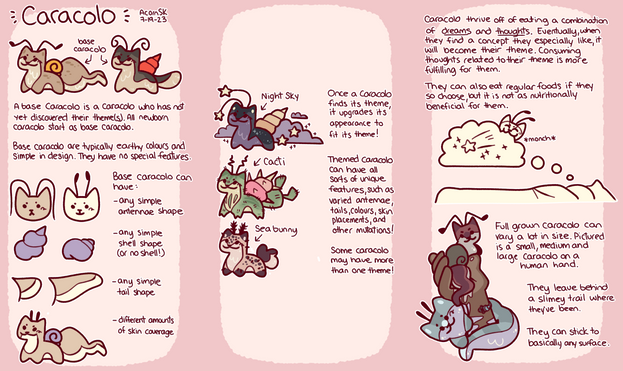 Caracolo
AcornSK
7-19-23
base
caracolo
A base Caracolo is a Caracolo who has not
yet discovered their theme(s). All newborn
caracolo start as base caracolo.
Base caracolo are typically earthy colours and
simple in design. They have no special features.
Base caracolo can
have:
-any simple
antennae shape
-any simple
shell shape
(or no shell!)
-any simple
tail shape
-different amounts
of skin coverage
Night Sky
Cacti
Sea bunny
Once a Caracolo
finds its theme,
it upgrades its
appearance to
fit its theme!
Themed Caracolo
can have all
sorts of unique
features, such as
varied antennae,
tails, colours, skin
placements, and
other mutations!
Some caracolo
may have more
than one theme!
Caracolo thrive off of eating a combination
of dreams and thoughts. Eventually, when
they find a concept they especially like, it
will become their theme. Consuming
thoughts related to their theme is more
fulfilling for them.
They can also eat regular foods if they
so choose, but it is not as nutritionally
beneficial for them.
*monch*
Full grown Caracolo can
vary a lot in size. Pictured
is a small, medium and
large Caracolo on a
human hand.
They leave behind
a slimey trail where
they've been.
They can stick to
basically any surface.